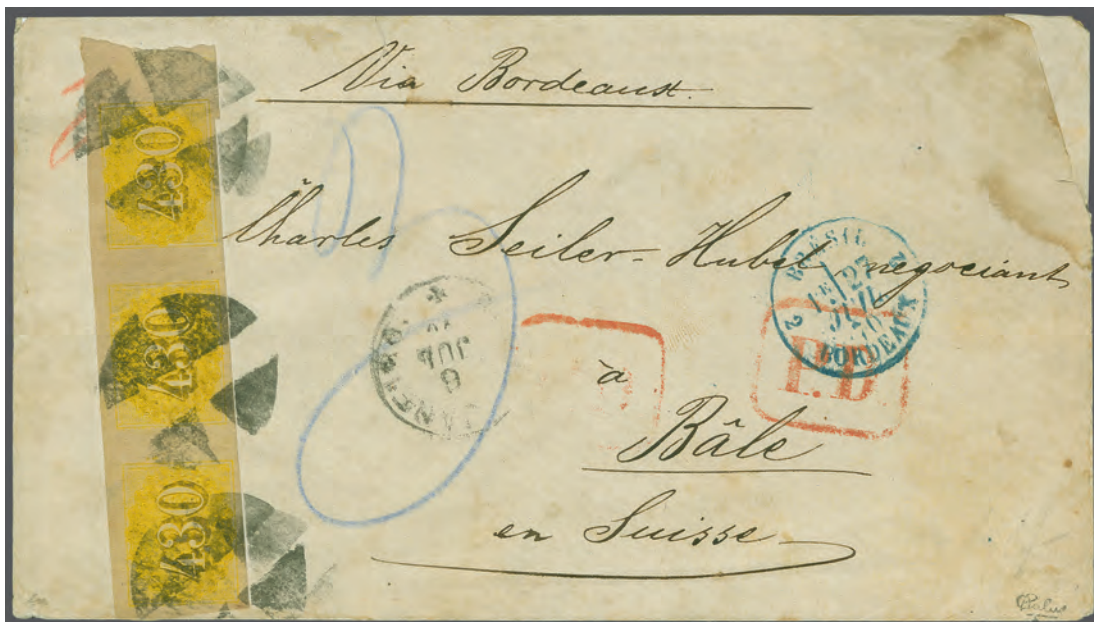 Via Bordeaux.
430
430
430
Charles Seiler-Hubet negociant
BRÉSIL
27
JUIL
BORDEAUX
2
P.D.
JANEIRO
JUL
à
Bâle
en Suisse